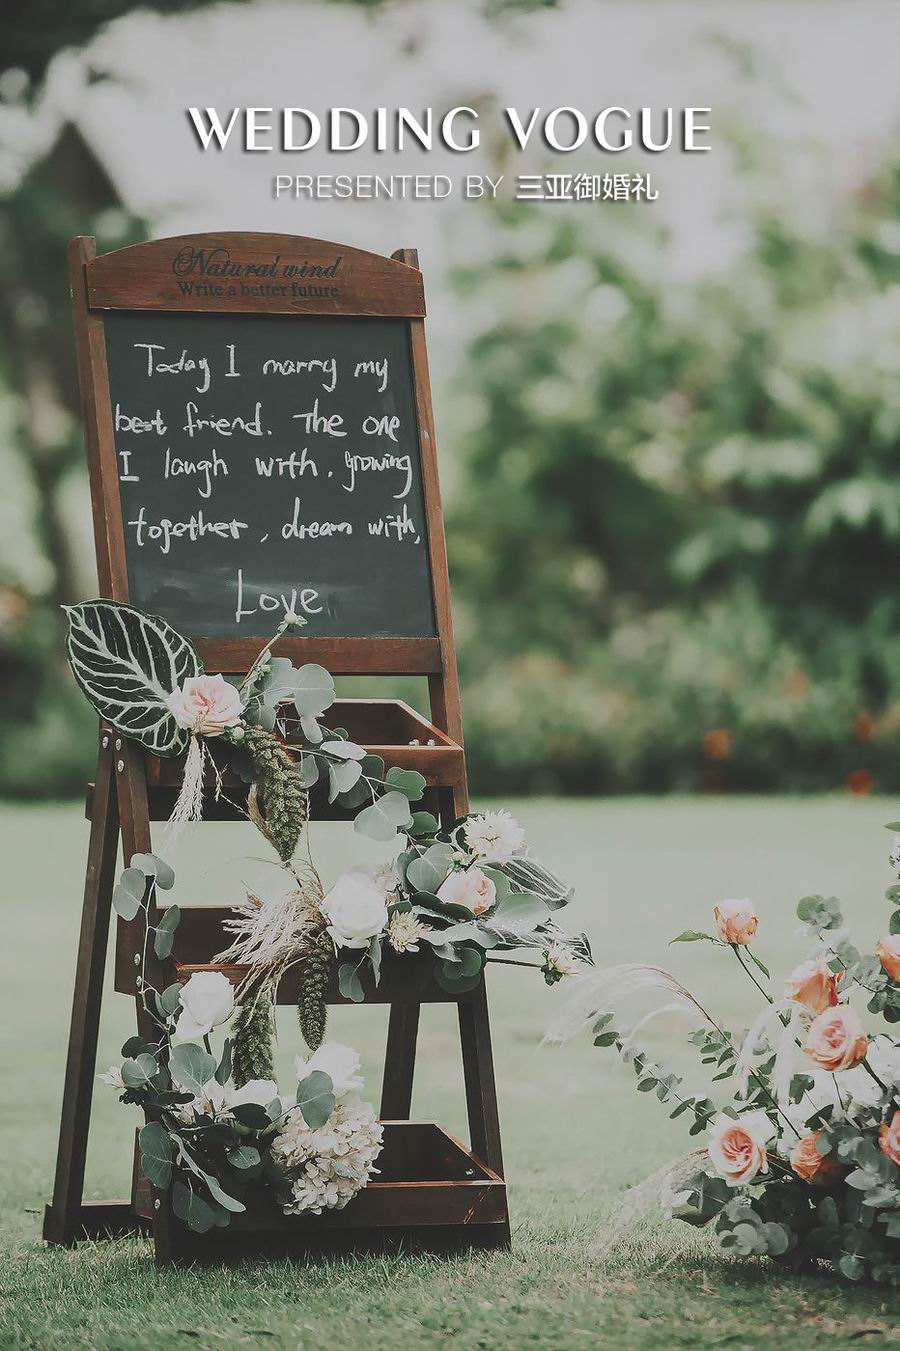 WEDDING VOGUE
PRESENTED BY 三亚御婚礼
Natural wind
Write a better future
Today I marry my
best friend. The one
I laugh with, growing
together, dream with,
Love